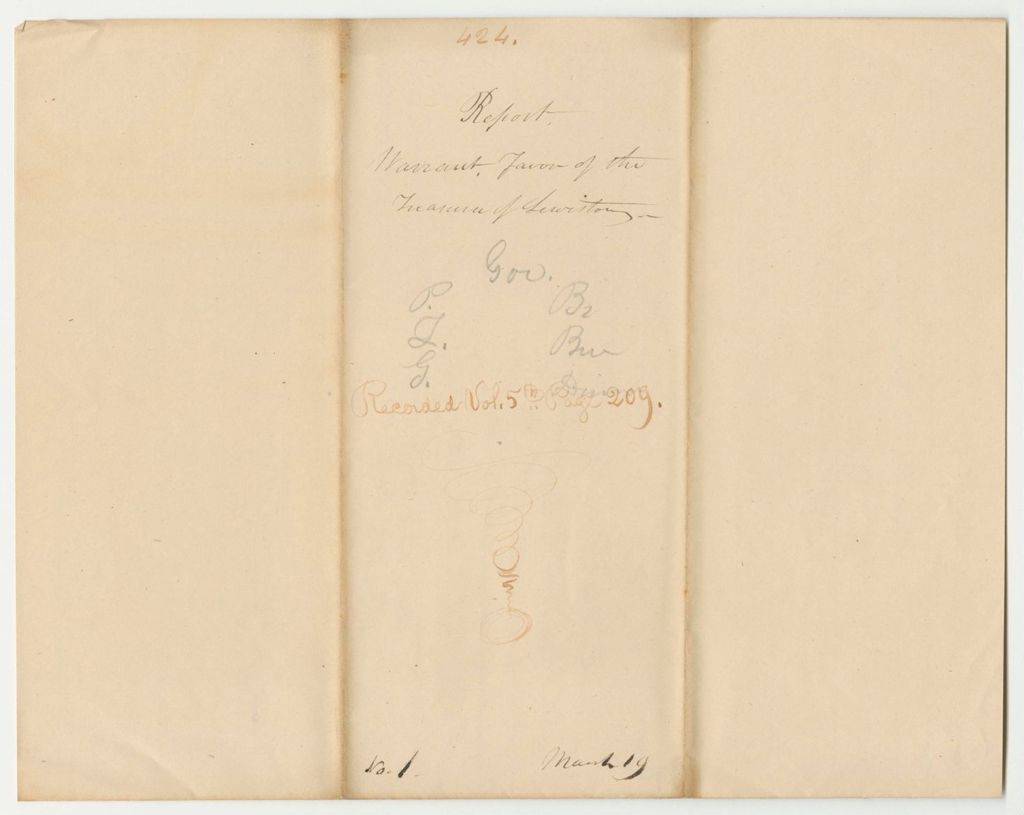 424.
Report,
Warrant, Favor of the
Treasurer of Lewiston
Gov.
P. Br
L. Bu
G.
Recorded Vol. 5th Page 209.
No. 1. March 19